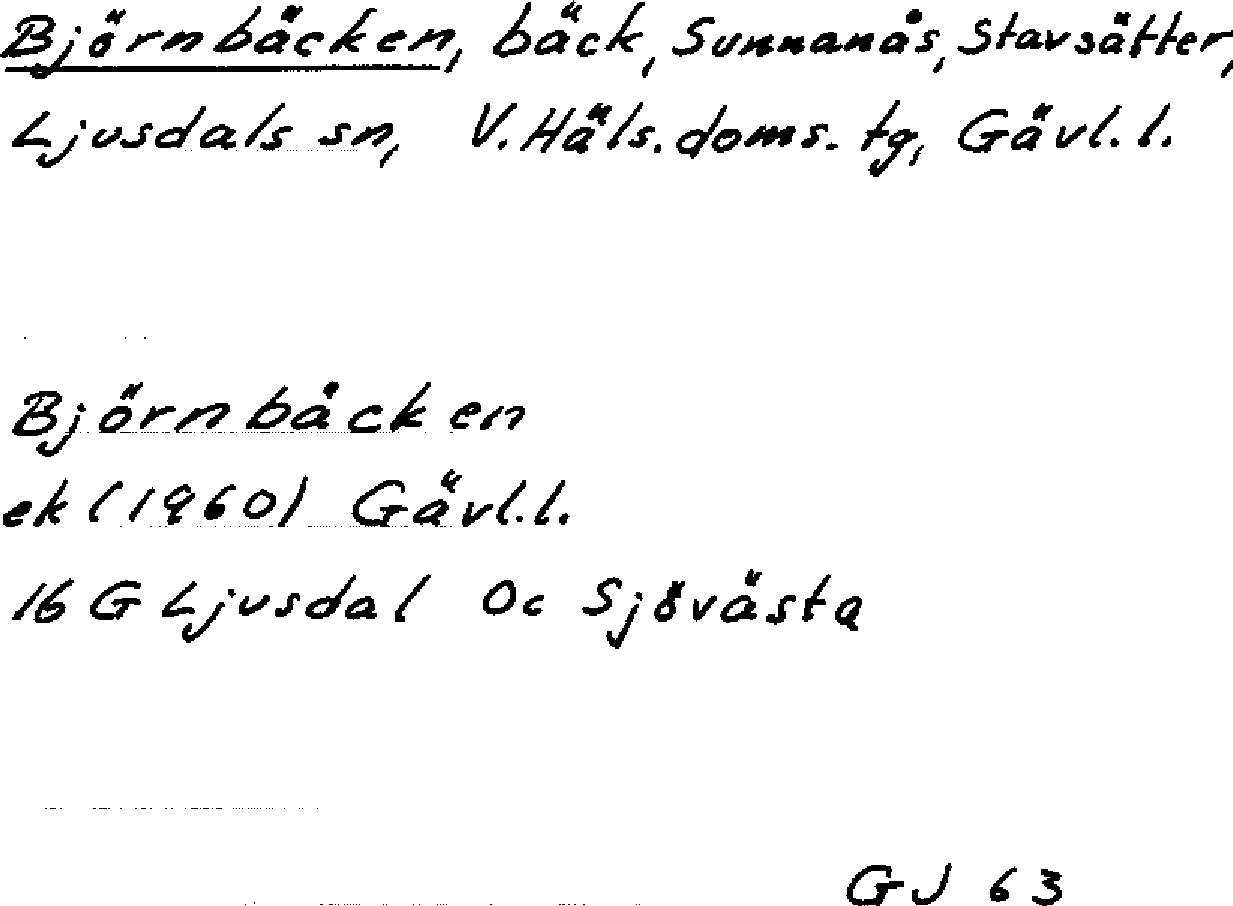 Björnbäcken, bäck, Sunnanås, Stavsätter,
Ljusdals sn, V. Häls. doms. tg, Gävl. l.
Björnbäcken
ek (1960) Gävl. l.
16 G Ljusdal 0c Sjövästa
GJ 63